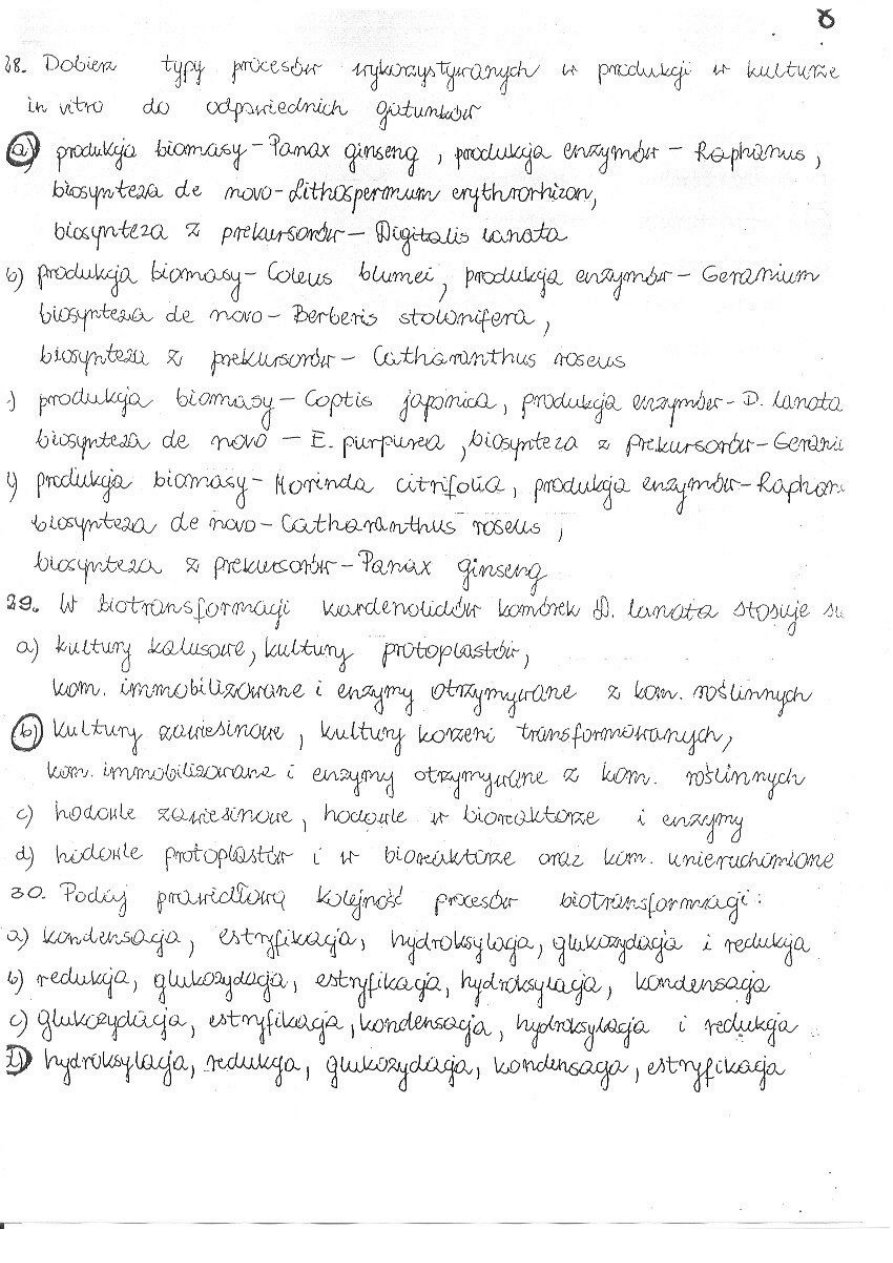 8
28. Dobierz typy procesów wykorzystywanych w produkcji w kulturze
in vitro do odpowiednich gatunków
a) produkcja biomasy - Panax ginseng, produkcja enzymów - Raphanus,
biosynteza de novo - Lithospermum erythrorhizon,
biosynteza z prekursorów - Digitalis lanata
b) produkcja biomasy - Coleus blumei, produkcja enzymów - Geranium
biosynteza de novo - Berberis stolonifera,
biosynteza z prekursorów - Catharanthus roseus
) produkcja biomasy - Coptis japonica, produkcja enzymów - D. lanata
biosynteza de novo - E. purpurea, biosynteza z prekursorów - Gerani
) produkcja biomasy - Morinda citrifolia, produkcja enzymów - Raphan
biosynteza de novo - Catharanthus roseus,
biosynteza z prekursorów - Panax ginseng
29. W biotransformacji kardenolidów komórek D. lanata stosuje si
a) kultury kalusowe, kultury protoplastów,
kom. immobilizowane i enzymy otrzymywane z kom. roślinnych
b) kultury zawiesinowe, kultury korzeni transformowanych,
kom. immobilizowane i enzymy otrzymywane z kom. roślinnych
c) hodowle zawiesinowe, hodowle w bioreaktorze i enzymy
d) hodowle protoplastów i w bioreaktorze oraz kom. unieruchomione
30. Podaj prawidłową kolejność procesów biotransformacji:
a) kondensacja, estryfikacja, hydroksylacja, glukozydacja i redukcja
b) redukcja, glukozydacja, estryfikacja, hydroksylacja, kondensacja
c) glukozydacja, estryfikacja, kondensacja, hydroksylacja i redukcja
d) hydroksylacja, redukcja, glukozydacja, kondensacja, estryfikacja